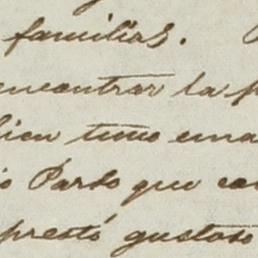 familias.
encontrar la
bien tuvo
Pardo que
prestó gustoso